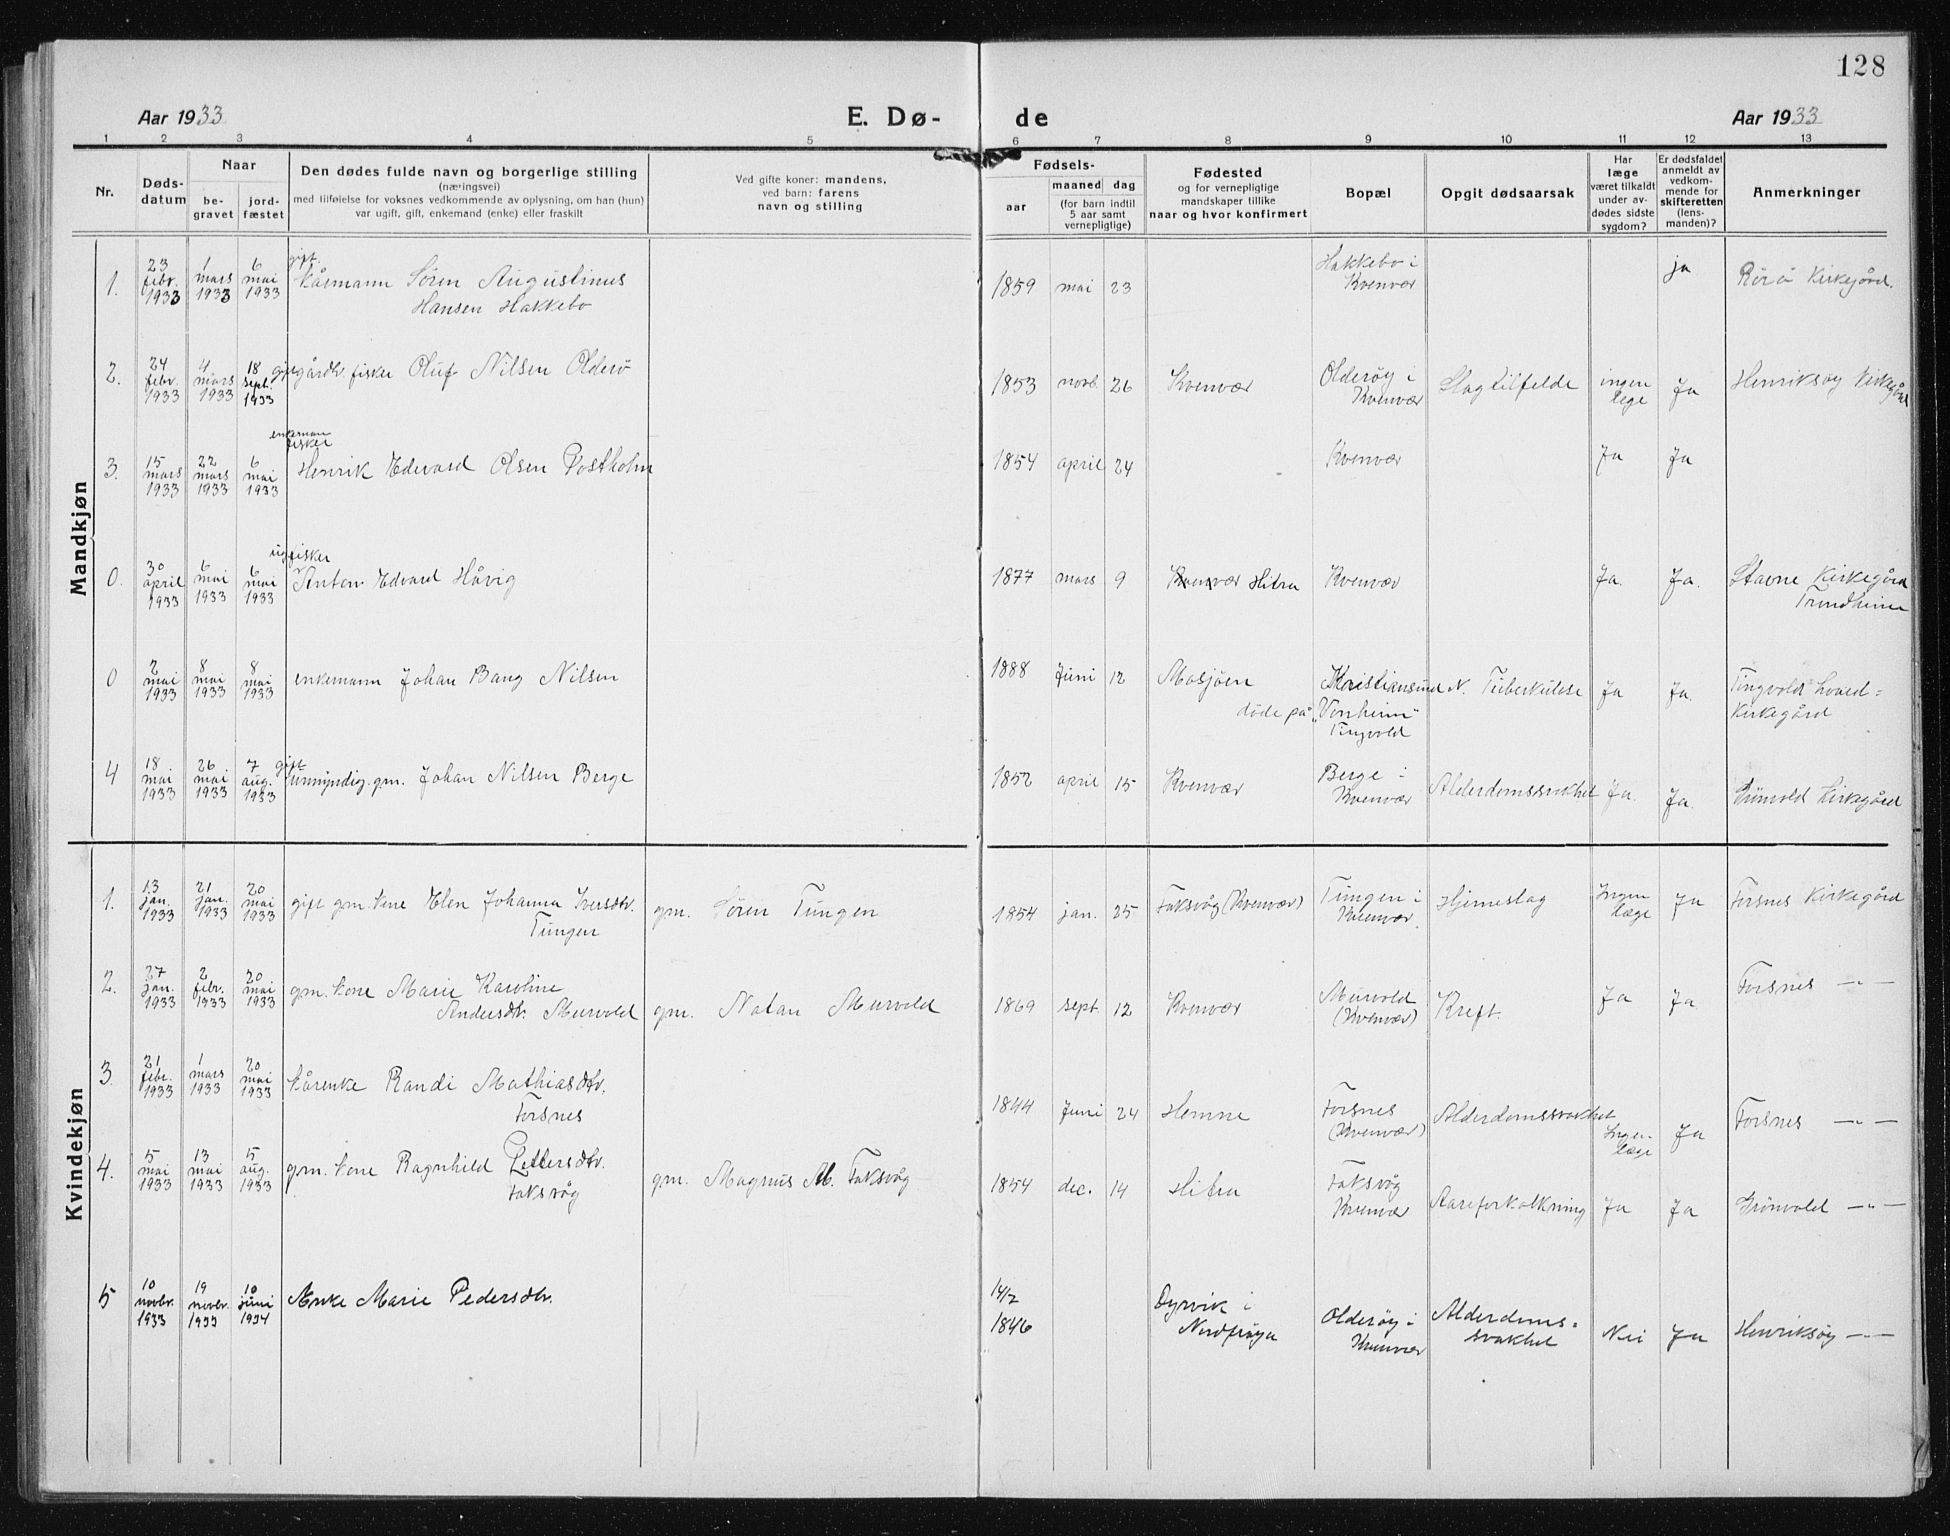 128
Aar 1933
E. Dø-
de
Aar 1933
1 2 3 4 5 6 7 8 9 10 11 12 13
Nr.
Døds-
datum
Naar
be-
gravet
jord-
fæstet
Den dødes fulde navn og borgerlige stilling
(næringsvei)
med tilføielse for voksnes vedkommende av oplysning, om han (hun)
var ugift, gift, enkemand (enke) eller fraskilt
Ved gifte koner: mandens,
ved barn: farens
navn og stilling
Fødsels-
aar
maaned dag
(for barn indtil
5 aar samt
vernepligtige)
Fødested
og for vernepligtige
mandskaper tillike
naar og hvor konfirmert
Bopæl
Opgit dødsaarsak
Har
læge
været tilkaldt
under av-
dødes sidste
sygdom?
Er dødsfaldet
anmeldt av
vedkom-
mende for
skifteretten
(lens-
manden)?
Anmerkninger
Mandkjøn
1. 23 febr. 1933 1 mars 1933 6 mai 1933 gift.
kårmann Sören Augustinus
Hansen Hakkebo
1859 mai 23 Hakkebo i
Kvenvær ja Rörö Kirkegård.
2. 24 febr. 1933 4 mars 1933 18 sept. 1933 gift gårdbr. fisker Oluf Nilsen Olderö
1853 novb. 26 Kvenvær Olderøy i
Kvenvær Slagtilfelde ingen
lege Ja Henriksøy Kirkegård
3. 15 mars 1933 22 mars 1933 6 mai 1933 enkeman
fisker
Henrik Edvard Olsen Postholm
1854 april 24 Kvenvær Ja Ja
0. 30 april 1933 6 mai 1933 6 mai 1933 ug. fisker
Anton Edvard Håvig
1877 mars 9 Kvenvær Hitra Kvenvær Ja. Ja. Stavne Kirkegård
Trondheim
0 2 mai 1933 8 mai 1933 8 mai 1933 enkemann Johan Bang Nilsen
1888 Juni 12 Mosjöen Kristiansund N. Tuberkulose Ja Ja. Tingvold hoved=
kirkegård
döde på "Vonheim"
Tingvold
4 18 mai 1933 26 mai 1933 7 aug. 1933 gift
umyndig. gm. Johan Nilsen Berge
1852 april 15 Kvenvær Berge i
Kvenvær Alderdomssvakhet Ja. Ja. Grönvold Kirkegård
Kvindekjøn
1. 13 jan. 1933 21 jan. 1933 20 mai 1933 gift gm. kone Elen Johanna Iversdtr.
Tungen
gm. Sören Tungen
1854 jan. 25 Faksvåg (Kvenvær) Tungen i
Kvenvær. Hjerneslag Ingen
læge Ja Forsnes Kirkegård
2. 27 jan. 1933 2 febr. 1933 20 mai 1933 gm. kone Marie Karoline
Andersdtr. Murvold
gm. Natan Murvold
1869 sept. 12 Kvenvær Murvold
(Kvenvær) Kreft. Ja Ja Forsnes —"—
3. 21 febr. 1933 1 mars 1933 20 mai 1933 kårenke Randi Mathiasdtr.
Forsnes
1844 Juni 24 Hemne Forsnes
(Kvenvær) Alderdomssvakhet Ingen
læge Ja Forsnes —"—
4. 5 mai 1933 13 mai 1933 5 aug. 1933 gm. kone Ragnhild Pettersdtr.
Faksvåg
gm. Magnus M. Faksvåg
1854 dec. 14 Hitra Faksvåg
Kvenvær Aareforkalkning Ja Ja Grönvold —"—
5 10 novbr. 1933 19 novbr. 1933 10 juni 1934 Anke Marie Pedersdtr.
14/2
1846 Dyrvik i
Nordfröya Olderöy i
Kvenvær Alderdoms=
svakhet Nei Ja Henriksöy —"—